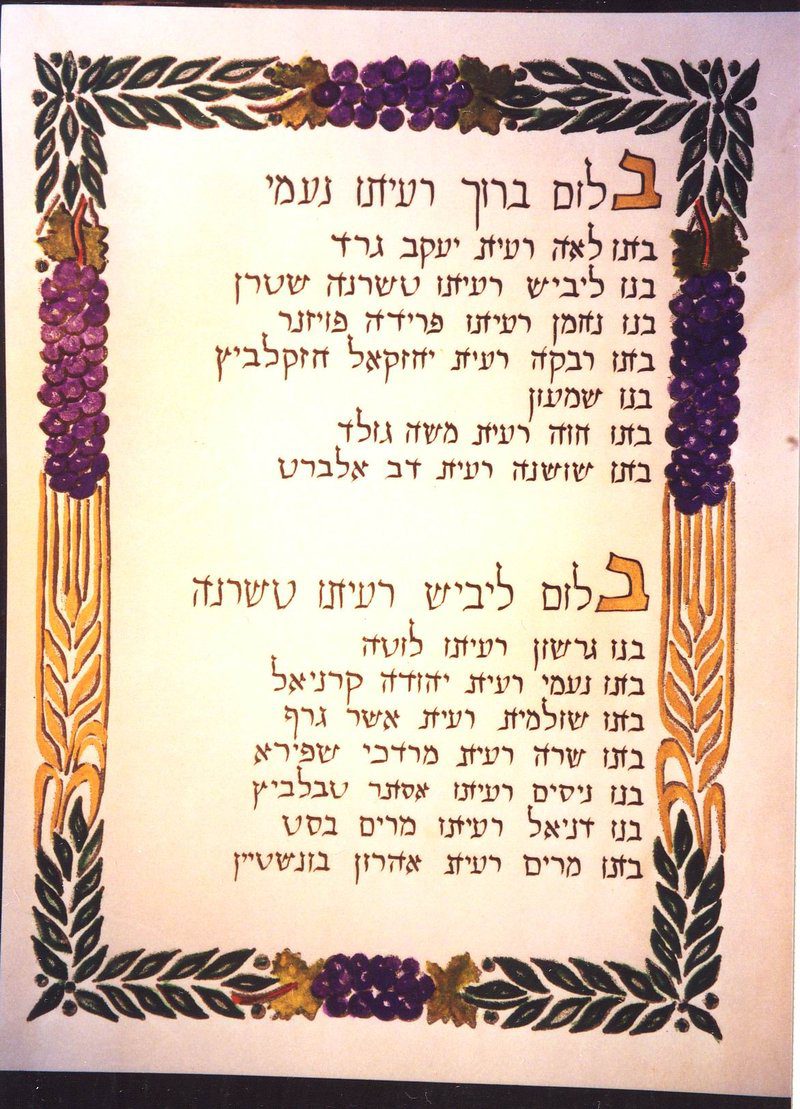 בלום ברוך רעיתו נעמי
בתו לאה רעית יעקב גרד
בנו ליביש רעיתו טשרנה שטרן
בנו נחמן רעיתו פרידה פויזנר
בתו רבקה רעית יחזקאל חזקלביץ
בנו שמעון
בתו חוה רעית משה גולד
בתו שושנה רעית דב אלברט
בלום ליביש רעיתו טשרנה
בנו גרשון רעיתו לוטה
בתו נעמי רעית יהודה קרניאל
בתו שולמית רעית אשר גרף
בתו שרה רעית מרדכי שפירא
בנו ניסים רעיתו אסתר טבלביץ
בנו דניאל רעיתו מרים בסט
בתו מרים רעית אהרון בונשטיין